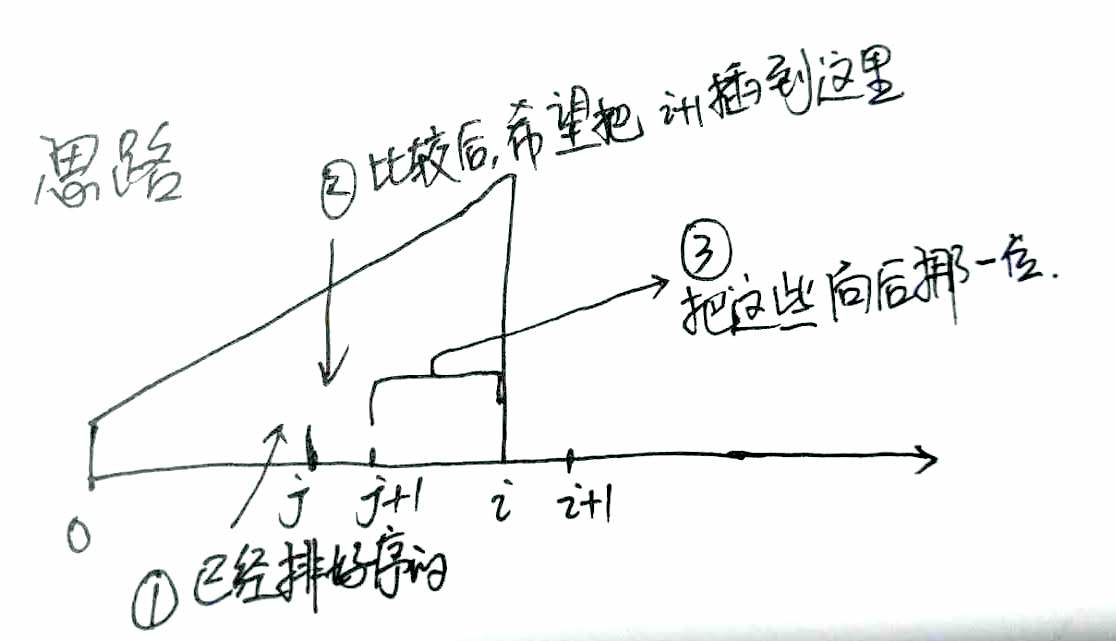 思路
②比较后,希望把 i+1插到这里
③
把这些向后挪一位.
j
j+1
i
i+1
0
①已经排好序的